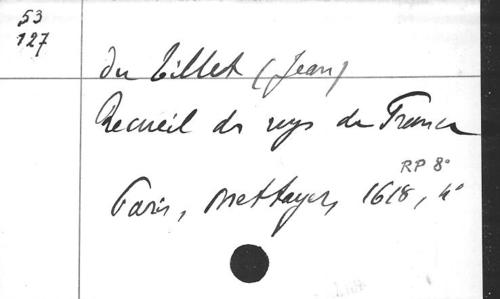 53
127
du Tillet (Jean)
Recueil des roys de France
RP 8°
Paris, Mettayer, 1618, 4°